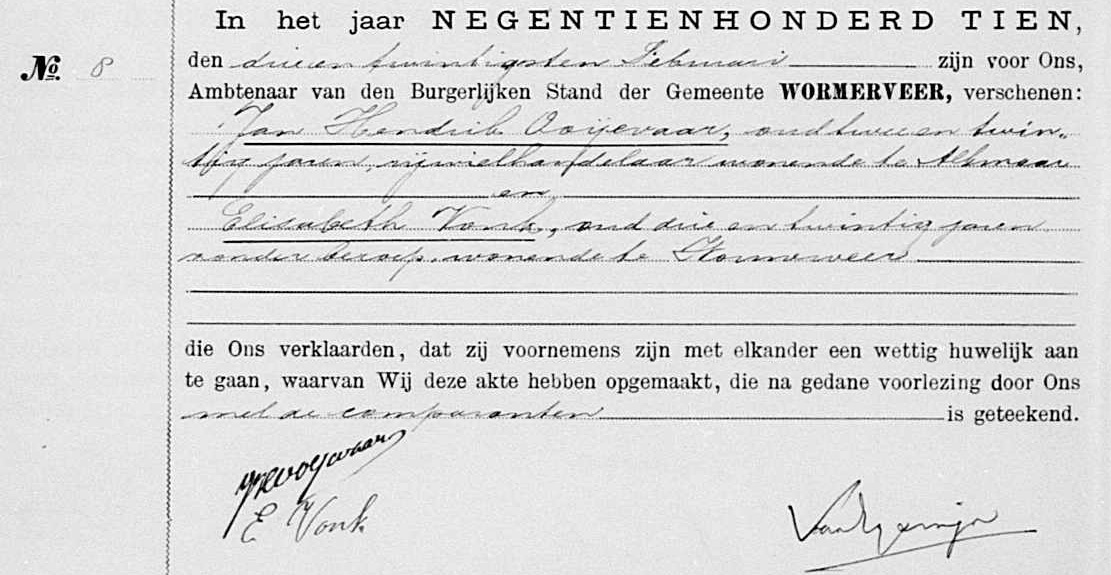 In het jaar NEGENTIENHONDERD TIEN,
No. 8
den drieentwintigsten Februari zijn voor Ons,
Ambtenaar van den Burgerlijken Stand der Gemeente WORMERVEER, verschenen:
Jan Hendrik Ooijevaar, oud twee en twin-
tig jaren, rijwielhandelaar wonende te Alkmaar
en
Elisabeth Vonk, oud drie en twintig jaren
zonder beroep, wonende te Wormerveer
die Ons verklaarden, dat zij voornemens zijn met elkander een wettig huwelijk aan
te gaan, waarvan Wij deze akte hebben opgemaakt, die na gedane voorlezing door Ons
met de comparanten is geteekend.
JHOoijevaar
E Vonk